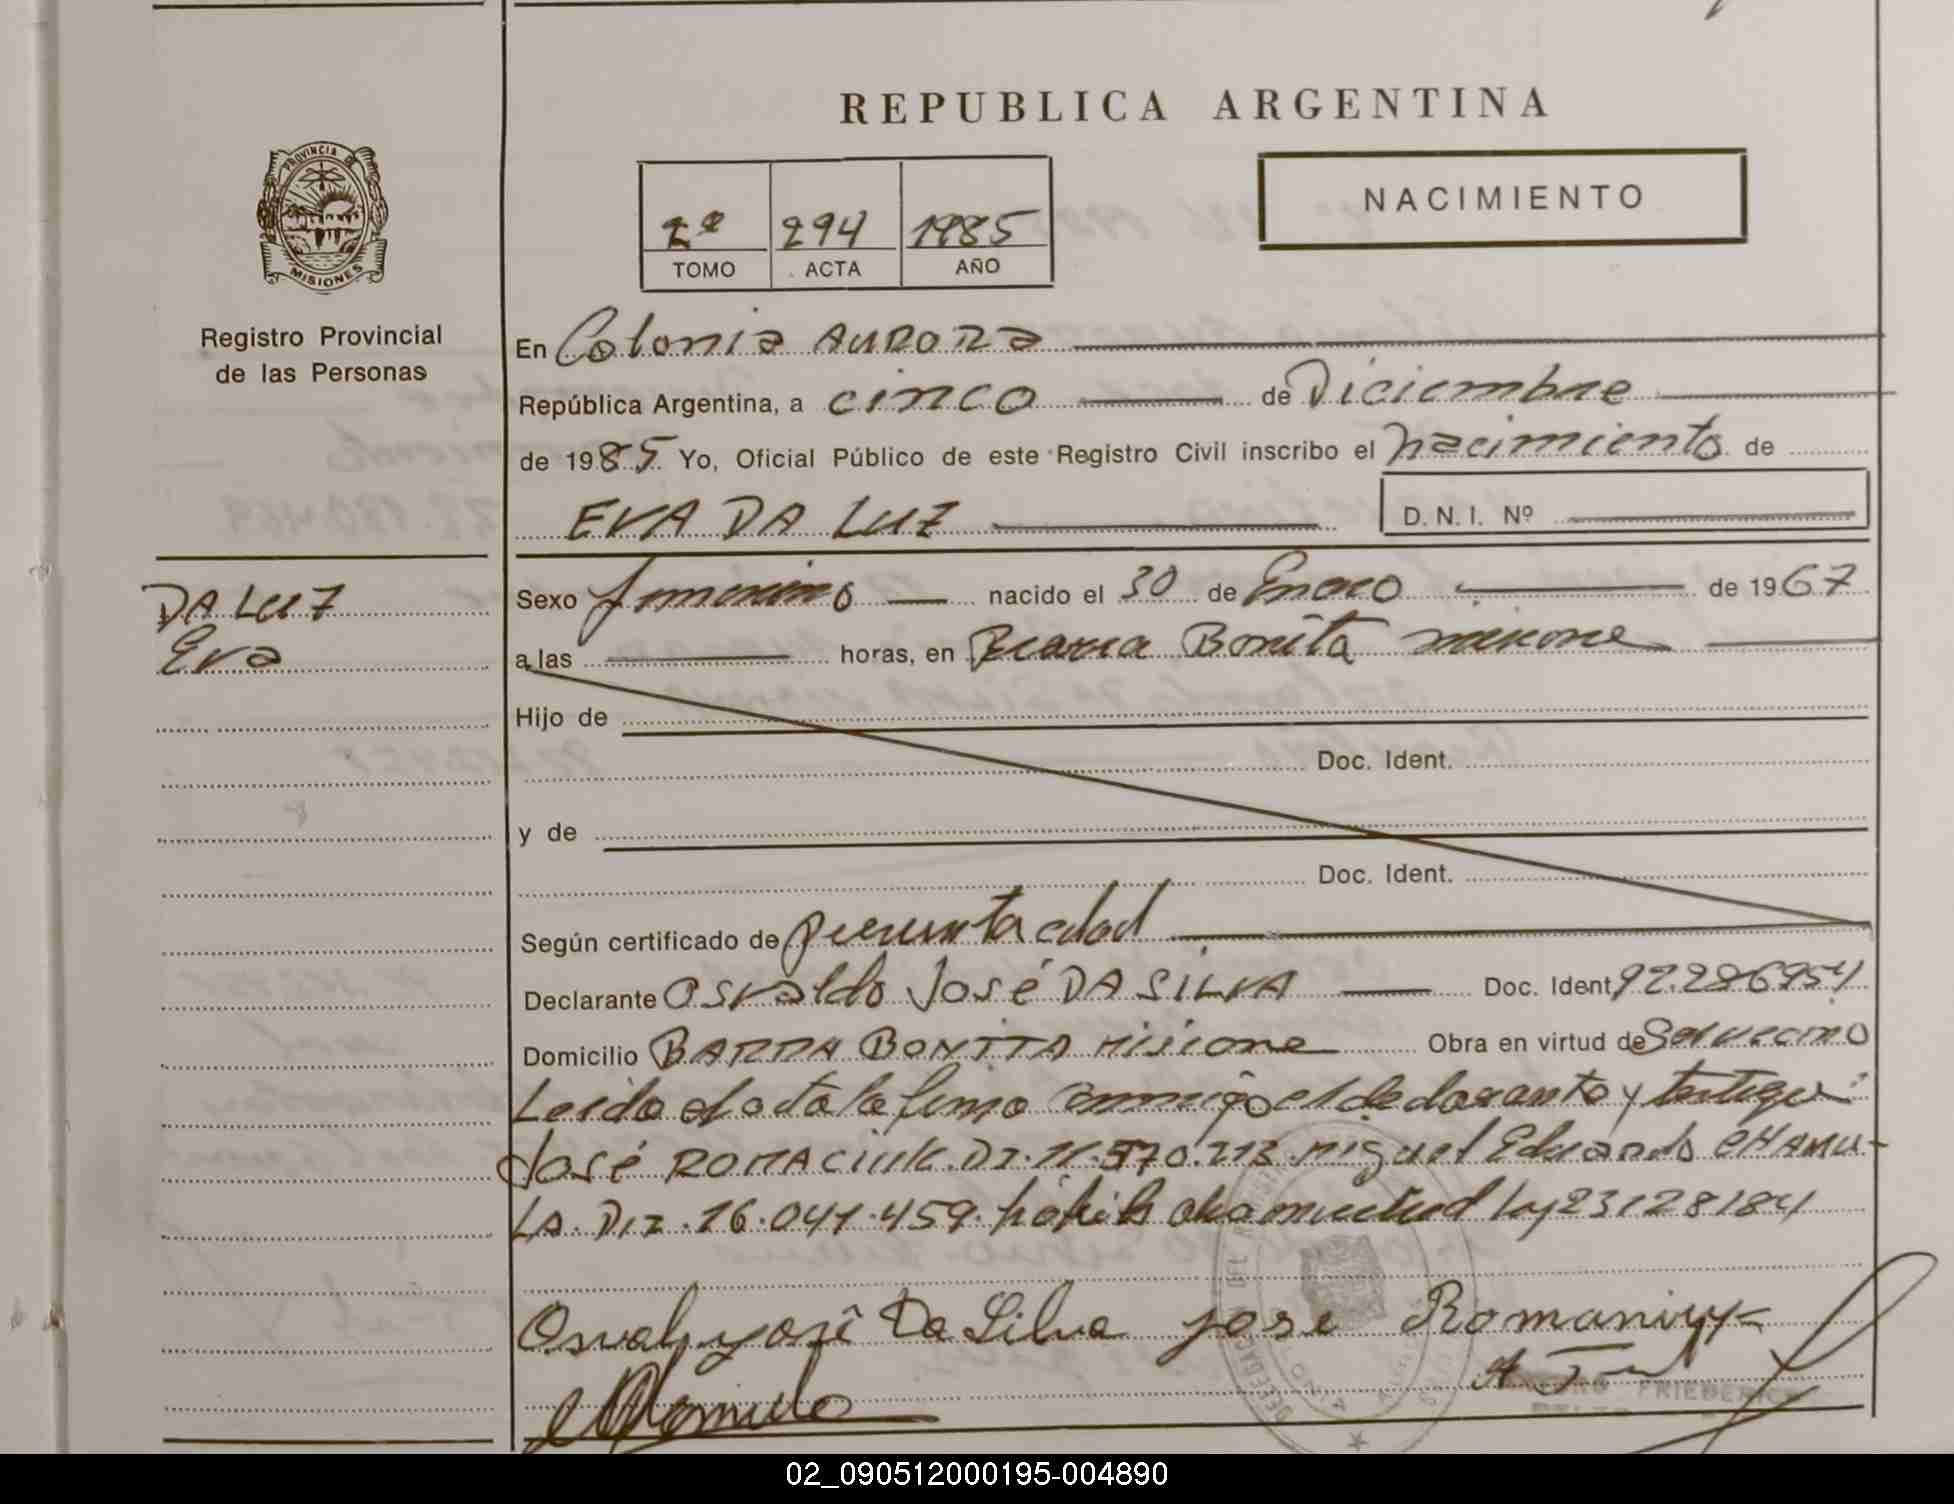 REPUBLICA ARGENTINA
NACIMIENTO
2º 294 1985
TOMO ACTA AÑO
PROVINCIA DE
MISIONES
Registro Provincial
de las Personas
En Colonia AURORA
República Argentina, a CINCO de Diciembre
de 1985 Yo, Oficial Público de este Registro Civil inscribo el nacimiento de
EVA DA LUZ D.N.I. Nº
DA LUZ
Eva
Sexo femenino nacido el 30 de Enero de 1967
a las horas, en Barra Bonita misione
Hijo de
Doc. Ident.
y de
Doc. Ident.
Según certificado de presunta edad
Declarante Osvaldo José DA SILVA Doc. Ident. 92.286954
Domicilio BARRA BONITA Misione Obra en virtud de Ser vecino
Leida el acta la firma conmigo el declarante y testigu
José ROMACIUK. DI. 11.570.213. Miguel Eduardo CHAMU-
LA. DIZ. 16.041.459. habil de amuctud ley 23128/84
Osvaldo José Da Silva jose Romaniuk
FRIEDERICH
02_090512000195-004890